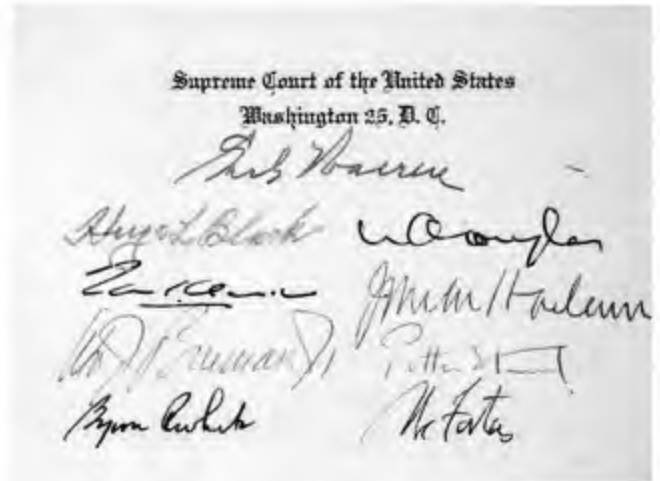 Supreme Court of the United States
Washington 25, D. C.
Earl Warren
Hugo L Black Wm O Douglas
Tom C. Clark John M Harlan
Wm J Brennan Jr Potter Stewart
Byron R White Abe Fortas